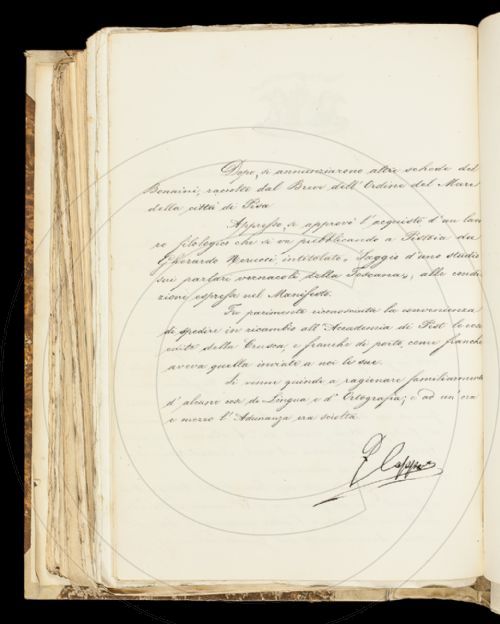 Dopo, si annunziarono altre schede del
Bonaini, raccolte dal Breve dell'Ordine del Mare
della città di Pisa
Appresso, si approvò l'acquisto d'un lavo
ro filologico che si va pubblicando a Pistoia da
Gherardo Nerucci, intitolato, Saggio d'uno studio
sui parlari vernacoli della Toscana, alle condi
zione espressa nel Manifesto.
Fu parimente riconosciuta la convenienza
di spedire in ricambio all'Accademia di le cose
edite della Crusca, e franche di porto, come franche
aveva quella inviate a noi le sue.
Si venne quindi a ragionare familiarmente
d'alcune cose di Lingua e d'Ortografia; e ad un'ora
e mezzo l'Adunanza era sciolta.